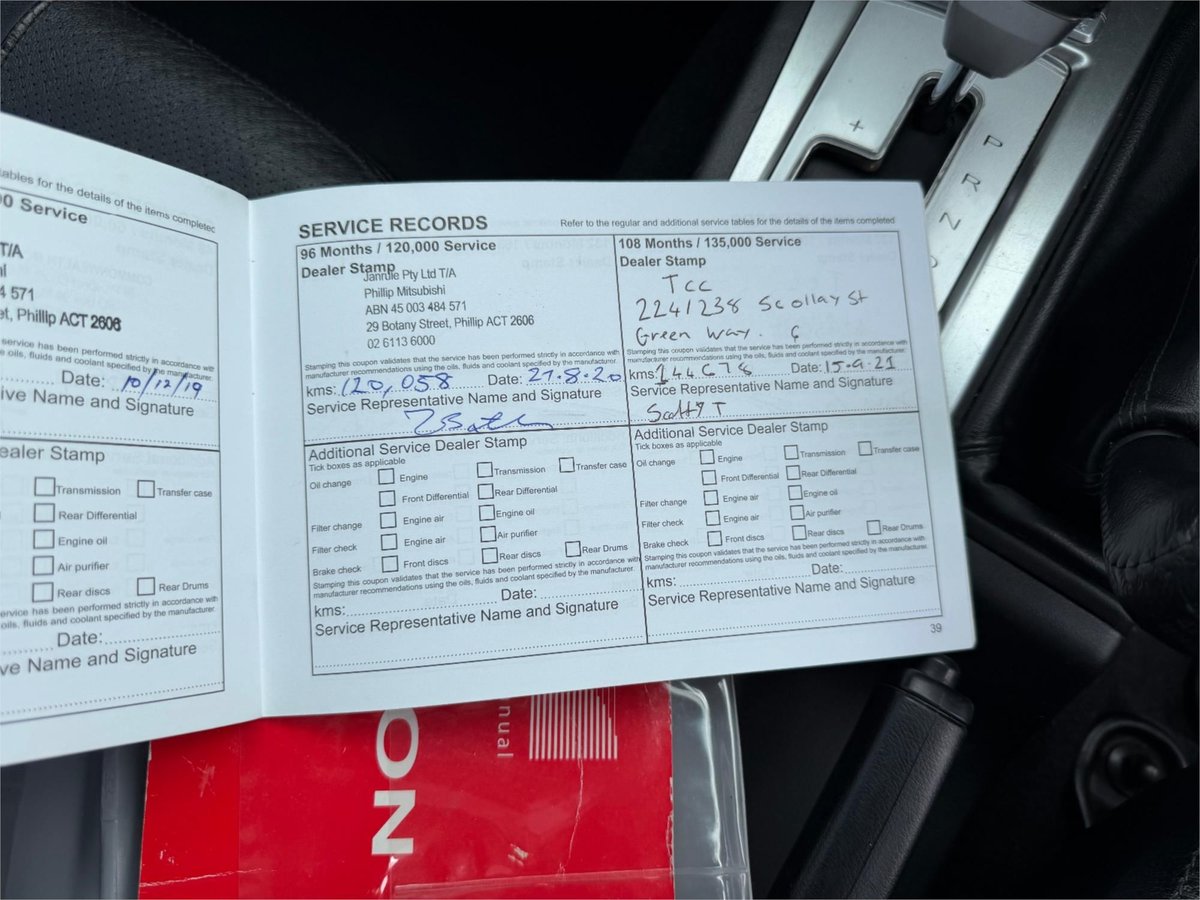 ables for the details of the items completed
00 Service
T/A
4 571
et, Phillip ACT 2606
service has been performed strictly in accordance with
oils, fluids and coolant specified by the manufacturer.
Date: 10/12/19
tive Name and Signature
ealer Stamp
Transmission Transfer case
Rear Differential
Engine oil
Air purifier
Rear discs Rear Drums
service has been performed strictly in accordance with
oils, fluids and coolant specified by the manufacturer.
Date:
ve Name and Signature
SERVICE RECORDS
Refer to the regular and additional service tables for the details of the items completed
96 Months / 120,000 Service
Dealer Stamp
Janrule Pty Ltd T/A
Phillip Mitsubishi
ABN 45 003 484 571
29 Botany Street, Phillip ACT 2606
02 6113 6000
Stamping this coupon validates that the service has been performed strictly in accordance with
manufacturer recommendations using the oils, fluids and coolant specified by the manufacturer.
kms: 120,058 Date: 27.8.20
Service Representative Name and Signature
Additional Service Dealer Stamp
Tick boxes as applicable
Oil change Engine Transmission Transfer case
Front Differential Rear Differential
Filter change Engine air Engine oil
Filter check Engine air Air purifier
Brake check Front discs Rear discs Rear Drums
Stamping this coupon validates that the service has been performed strictly in accordance with
manufacturer recommendations using the oils, fluids and coolant specified by the manufacturer.
kms: Date:
Service Representative Name and Signature
108 Months / 135,000 Service
Dealer Stamp
Tcc
2241238 Scollay St
Green Way.
Stamping this coupon validates that the service has been performed strictly in accordance with
manufacturer recommendations using the oils, fluids and coolant specified by the manufacturer.
kms: 144.678 Date: 15.9.21
Service Representative Name and Signature
Scotty T
Additional Service Dealer Stamp
Tick boxes as applicable
Oil change Engine Transmission Transfer case
Front Differential Rear Differential
Filter change Engine air Engine oil
Filter check Engine air Air purifier
Brake check Front discs Rear discs Rear Drums
Stamping this coupon validates that the service has been performed strictly in accordance with
manufacturer recommendations using the oils, fluids and coolant specified by the manufacturer.
kms: Date:
Service Representative Name and Signature
39
+
P
R
N
D
ON
nual